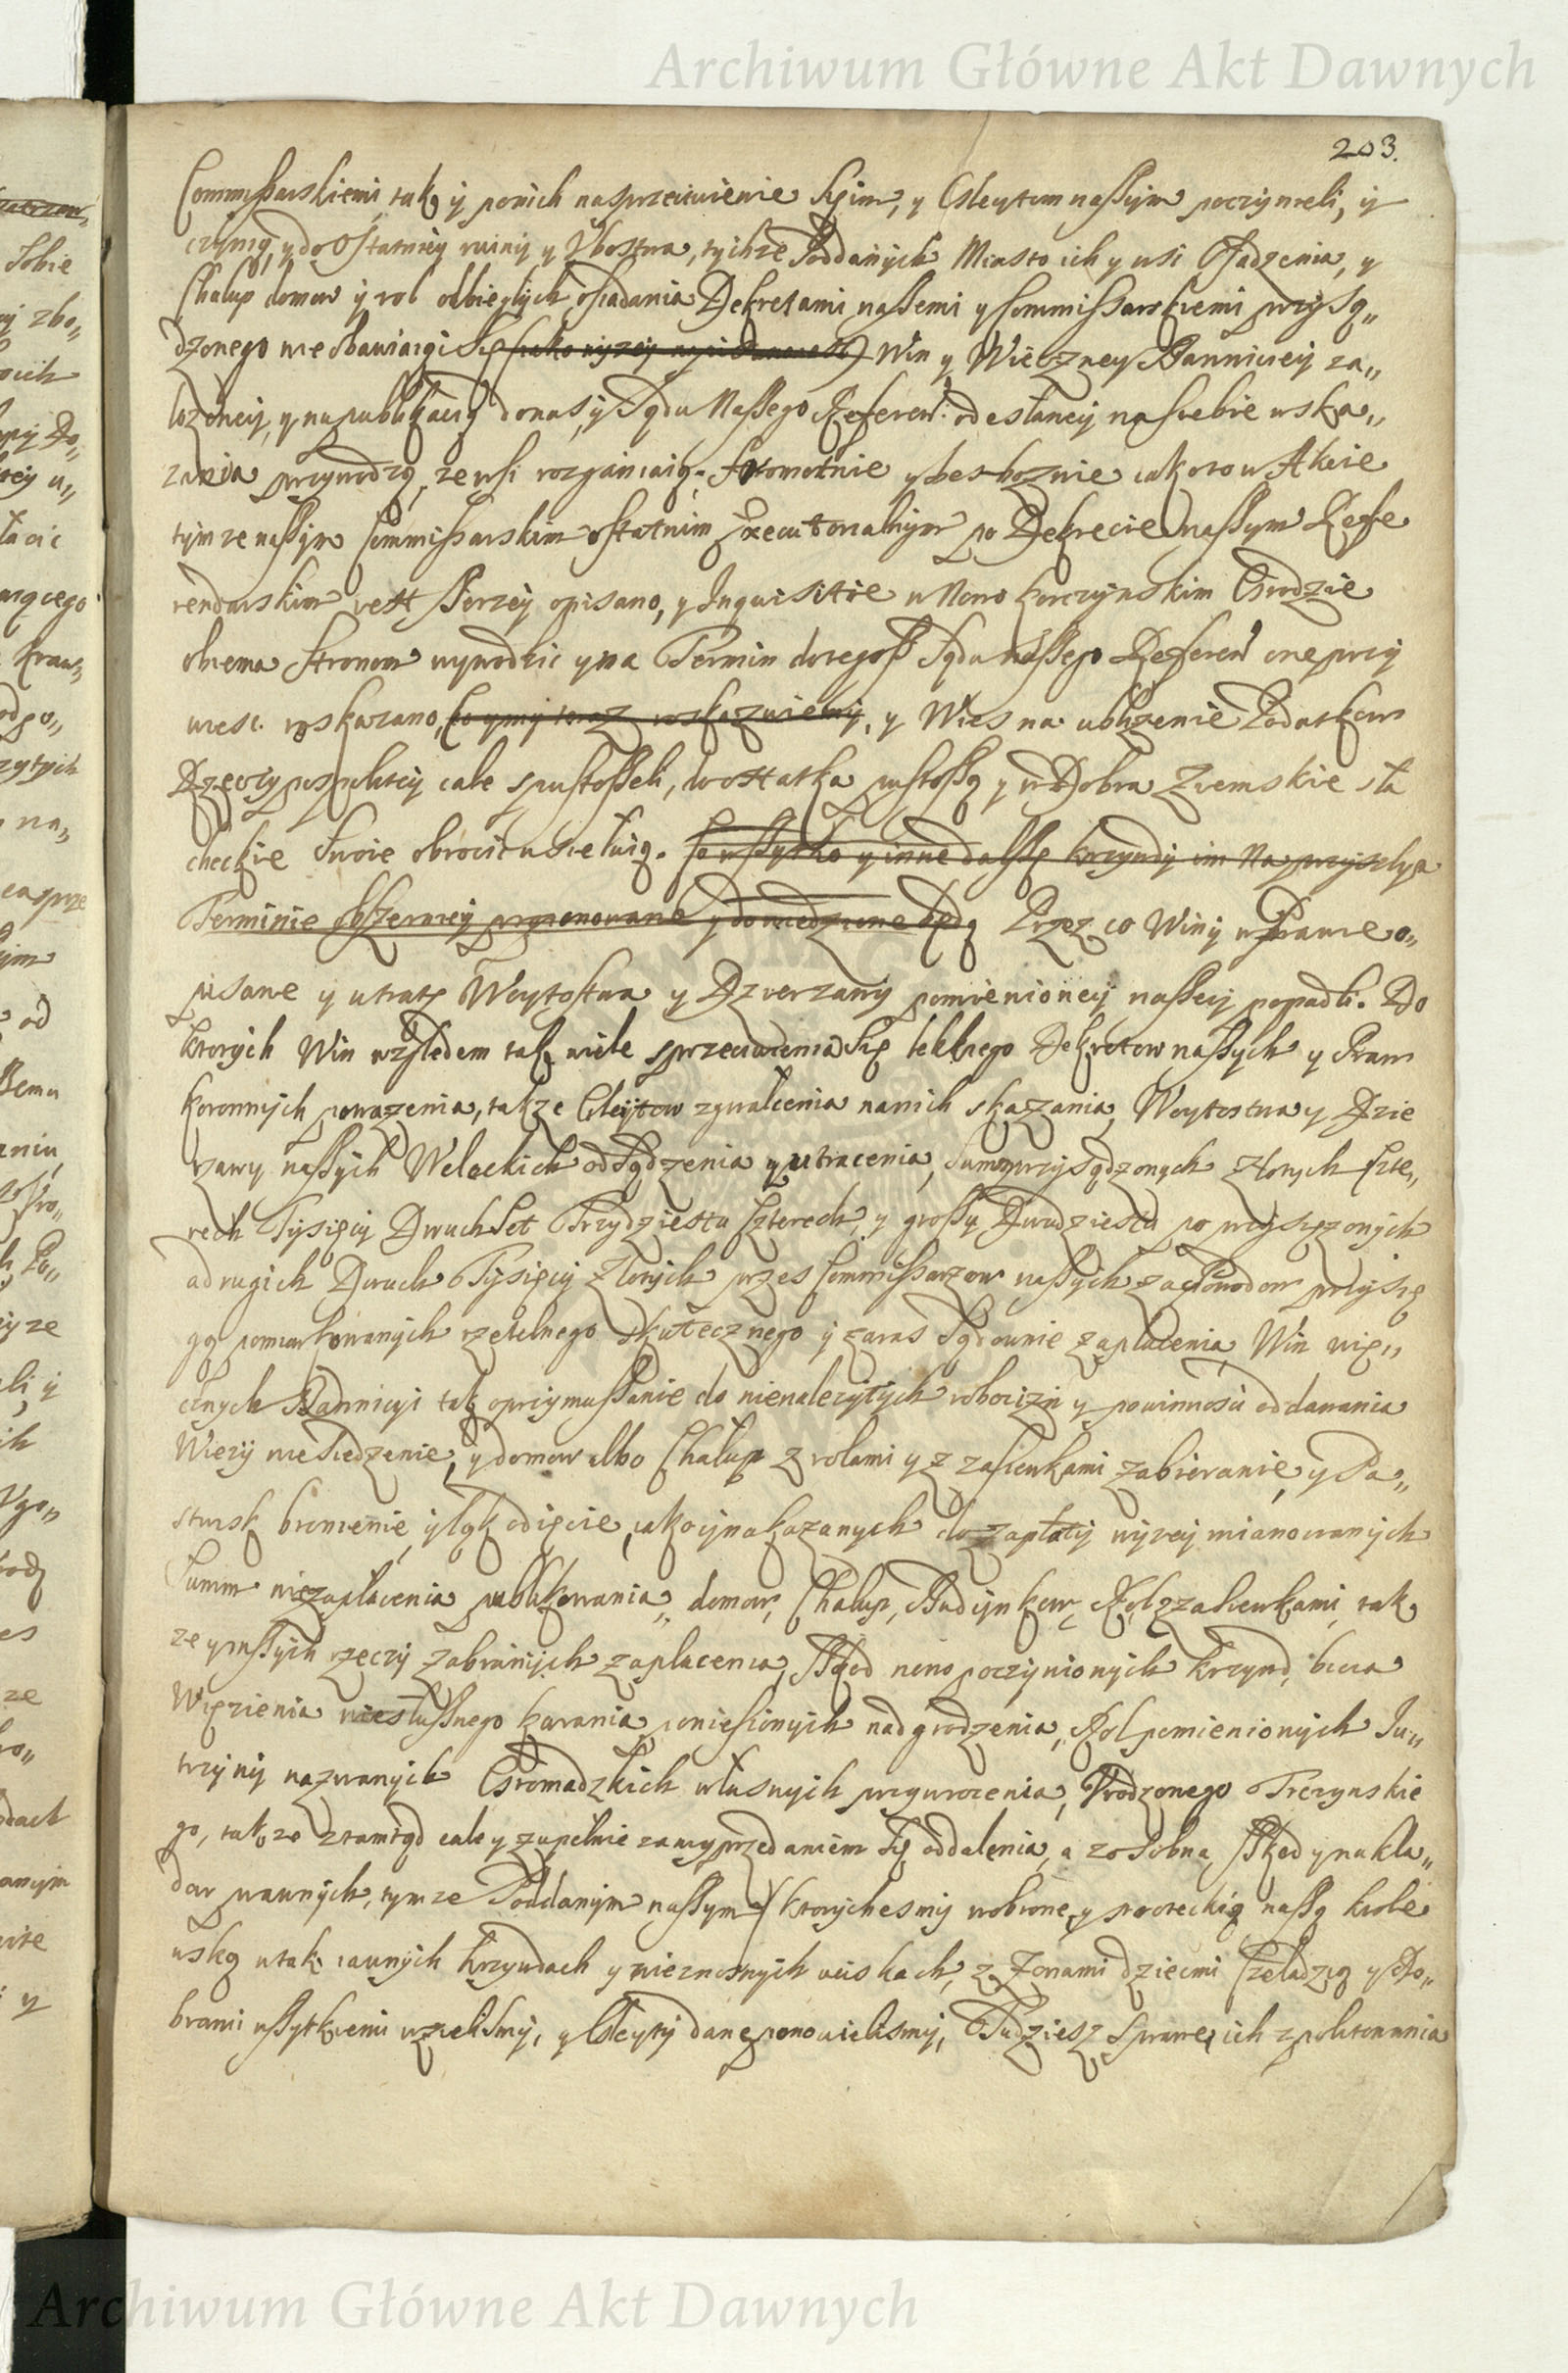 Archiwum Główne Akt Dawnych
203.
Commissarskiemi, tak y ponich nasprzeciwienie się im, y Gleytom nassym poczynieli, y
czynią, y do Ostatniey ruiny y Ubostwa, tychze Poddanych Miasto ich y wsi Osadzenia, y
Chalup domow y rol odbieglych osiadania Dekretami nassemi y Commissarskiemi przysą„
dzonego nie obawiaiąc Się (iako nizey) Win y Wieczney Banniciey za„
lozoney, y na publikacią do nas, y Sądu Nassego Referen: odeslaney na siebie wska„
zania przywodzą, ze wsi rozganiaią. sromotnie y bezboznie iako to w Akcie
tymze nassym Commissarskim ostatnim Executorialnym po Dekrecie nassym Refe
rendarskim iest Szerzey opisano, y Inquisitie w Nowo Korczynskim Grodzie
obiema Stronom wywodzic y na Termin dzregosz Sądu nassego Referen one przy
niesc wskazano, Co y my teraz wskazuiemy, y Wies na ublizenie Podatkow
Rzeczypospolitey cale spustosseli, do ostatka pustossą y w Dobra Ziemskie sla
checkie Swoie obrocic usieluią. Co wssytko y inne dalsse krzywdy im Na przyszlym
Terminie obszerniey proponowane y dowiedzione będą Przez co Winy w Prawie o„
pisane y utratę Woytostwa y Dzierzawy pomienioney nassey popadli. Do
ktorych Win względem tak wiele sprzeciwienia Się lekkiego Dekretow nassych y Praw
koronnych powazenia, takze Gleytow zgwalcenia nanich skazania, Woytostwa y Dzie
rzawy nassych Weleckich odsądzenia y utracenia, Summ przysądzonych zlotych Czte„
rech Tysięcy Dwuch Set Trzydziestu Czterech, y grossy Dwudziestu po przysięzonych
a drugich Dwuch Tysięcy Zlotych przes Commissarzow nassych za Powodow przysię
gą pomiarkowanych rzetelnego Skutecznego y zaras Sądownie zaplacenia, Win wie„
cznych Bannicyi tak o przymussanie do nienalezytych robocizn y powinnosci oddawania
Wiezy nie Siedzenie, y domow albo Chalup z rolami y z zasiewkami zabieranie, y Pa„
stwisk bronienie, y Ląk odięcie, iako y nakazanych do zaplaty wyzey mianowanych
Summ niezaplacenia publikowania„ domow, Chalup, Budynkow, Rol z zasiewkami, tak
ze y wssych rzeczy zabranych zaplacenia, Szkod nowo poczynionych krzywd, bicia
Więzienia nieslussnego karania poniesionych nadgrodzenia, Rol pomienionych Ju„
trzyny nazwanych Gromadzkich wlasnych przywrocenia, Urodzonego Trezynskie
go, takze ztamtąd cale y zupelnie za wyprzedaniem Się oddalenia, a zosobna, Szkod y nakla„
dow prawnych, tymze Poddanym nassym (ktorychesmy w obronę y protectią nassą krole
wską w tak iawnych krzywdach y nieznosnych uciskach, z Zonami dziecmi Czeladzią y Do„
brami wssytkiemi wzielismy, y Gleyty dane ponowielismy, Tudziesz Sprawę ich z politowania
Archiwum Główne Akt Dawnych